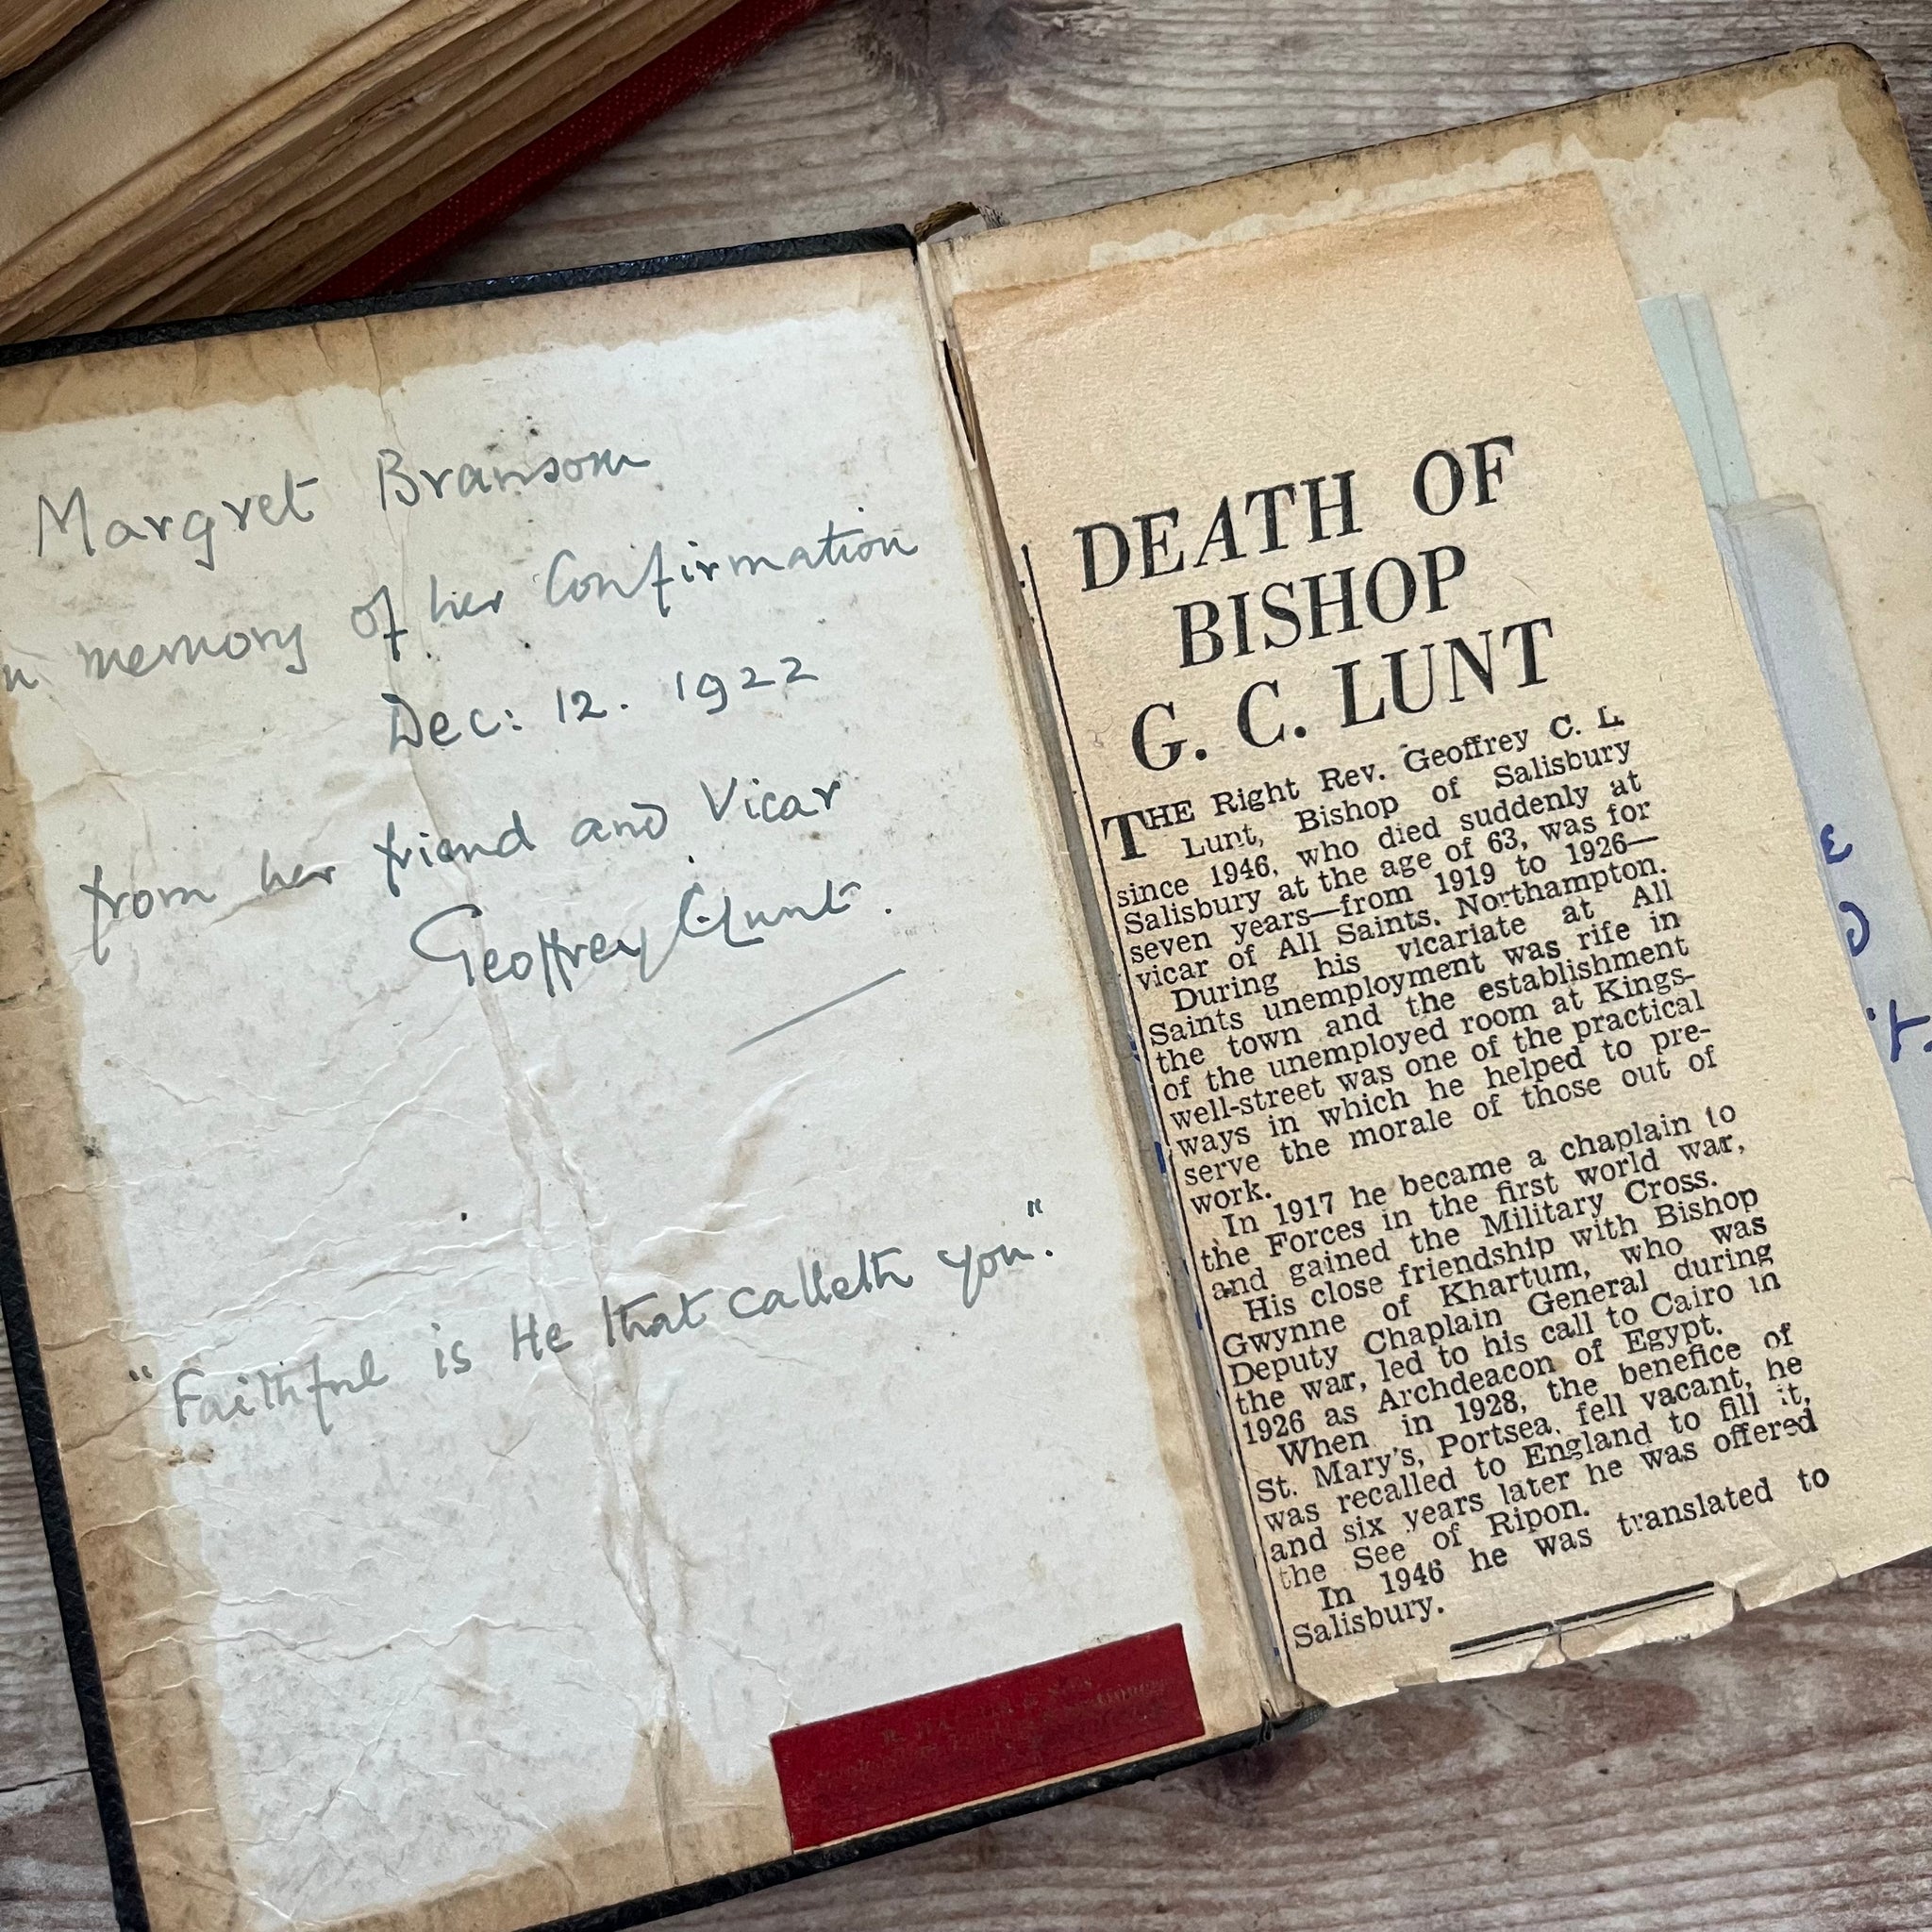 Margret Bransom
memory of her Confirmation
Dec: 12. 1922
from her friend and Vicar
Geoffrey C. Lunt.
"Faithful is He that calleth you."
DEATH OF
BISHOP
G. C. LUNT
THE Right Rev. Geoffrey C. L.
Lunt, Bishop of Salisbury
since 1946, who died suddenly at
Salisbury at the age of 63, was for
seven years—from 1919 to 1926—
vicar of All Saints, Northampton.
During his vicariate at All
Saints unemployment was rife in
the town and the establishment
of the unemployed room at Kings-
well-street was one of the practical
ways in which he helped to pre-
serve the morale of those out of
work.
In 1917 he became a chaplain to
the Forces in the first world war,
and gained the Military Cross.
His close friendship with Bishop
Gwynne of Khartum, who was
Deputy Chaplain General during
the war, led to his call to Cairo in
1926 as Archdeacon of Egypt.
When in 1928, the benefice of
St. Mary's, Portsea, fell vacant, he
was recalled to England to fill it,
and six years later he was offered
the See of Ripon.
In 1946 he was translated to
Salisbury.